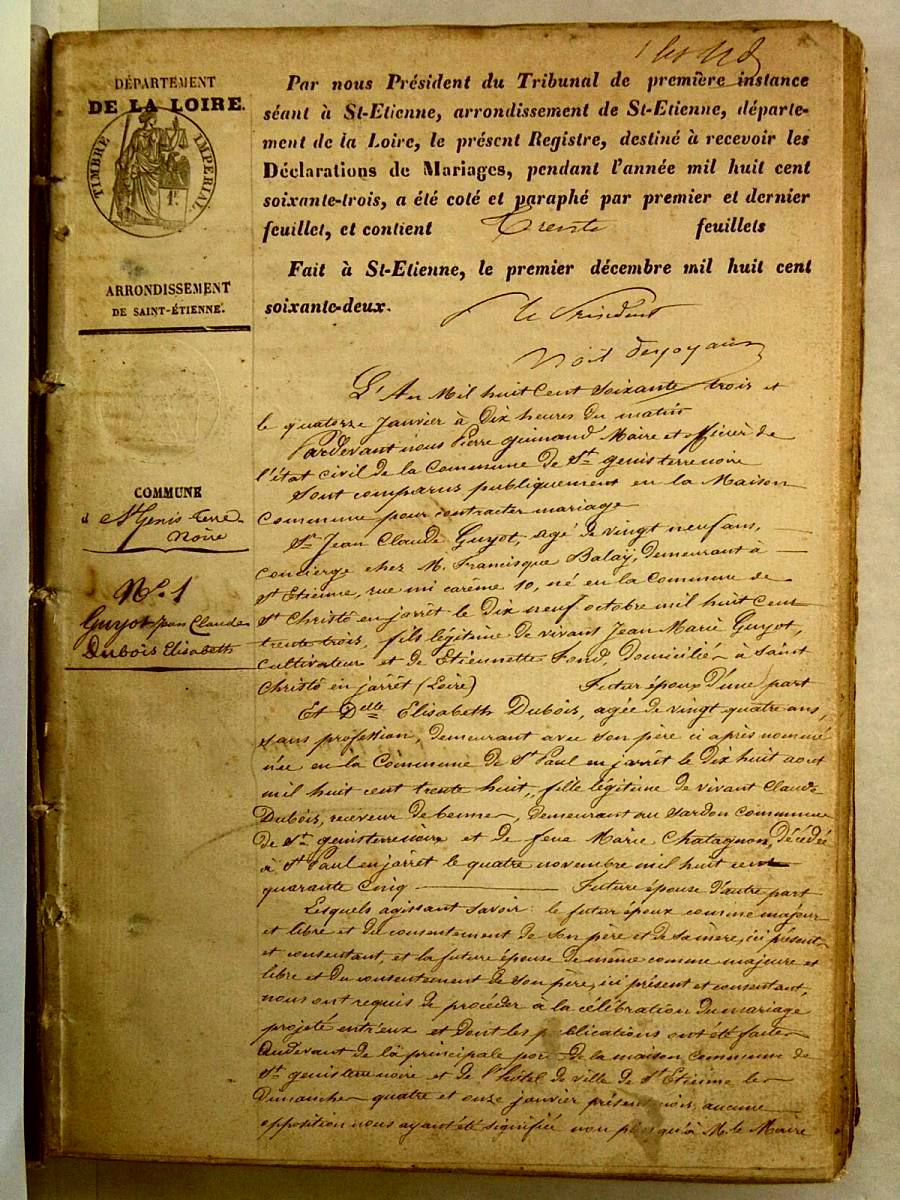 DÉPARTEMENT
DE LA LOIRE.
TIMBRE IMPERIAL
1f.
ARRONDISSEMENT
DE SAINT-ÉTIENNE.
COMMUNE
d St Genis Terre-
Noire
No. 1
Guyot Jean Claude
Dubois Elisabeth
Par nous Président du Tribunal de première instance
séant à St-Etienne, arrondissement de St-Etienne, départe-
ment de la Loire, le présent Registre, destiné à recevoir les
Déclarations de Mariages, pendant l'année mil huit cent
soixante-trois, a été coté et paraphé par premier et dernier
feuillet, et contient Trente feuillets
Fait à St-Etienne, le premier décembre mil huit cent
soixante-deux.
le Président
L'An Mil huit Cent Soixante trois et
le quatorze Janvier à Dix heures du matin
Pardevant nous Pierre Guimand Maire et officier de
l'état civil de la Commune de St genisterrenoire
Sont comparus publiquement en la Maison
Commune pour contracter mariage
Sr Jean Claude Guyot, agé de vingt neuf ans,
concierge chez M. Francisque Balaÿ, demeurant à
St Etienne, rue mi carême 10, né en la Commune de
St Christô en jarrêt le Dix neuf octobre mil huit cent
trente trois, fils légitime de vivant Jean Marie Guyot,
cultivateur et de Etiennette Fond, domiciliés à Saint
Christô en jarrêt (Loire) Futur époux D'une part
Et Delle Elisabeth Dubois, agée de vingt quatre ans,
sans profession, demeurant avec son père ci après nommé
née en la Commune de St Paul en jarrêt le Dix huit aout
mil huit cent trente huit, fille légitime de vivant Claude
Dubois, receveur de bennes, demeurant au Sardon commune
de St genisterrenoire et de feue Marie Chatagnon, décédée
à St Paul en jarrêt le quatre novembre mil huit cent
quarante cinq Future épouse D'autre part
Lesquels agissant savoir: le futur époux comme majeur
et libre et du consentement de son père et de sa mère, ici présents
et consentant, et la future épouse de même comme majeure et
libre et du consentement de son père, ici présent et consentant,
nous ont requis de procéder à la célébration du mariage
projeté entr'eux et dont les publications ont été faites
audevant de la principale porte de la maison commune de
St genisterrenoire et de l'hôtel de ville de St Etienne les
dimanches quatre et onze janvier présent mois, aucune
opposition nous ayant été signifiée non plus qu'à M. le Maire